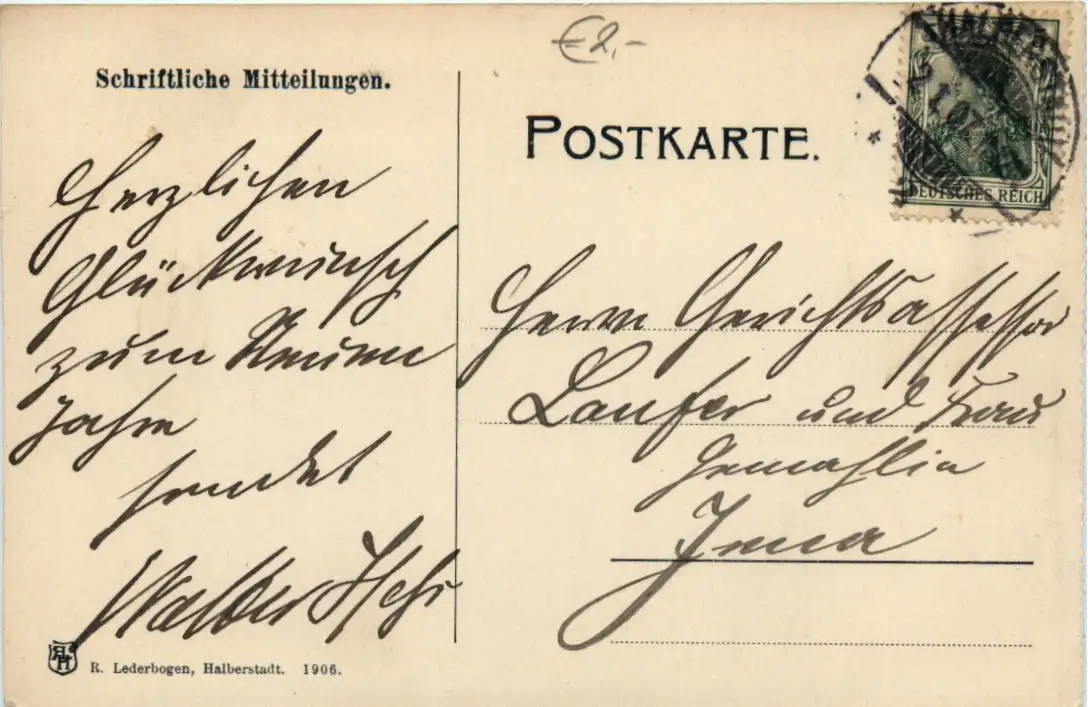 €2,-
Schriftliche Mitteilungen.
POSTKARTE.
HALBERSTADT
1.07
DEUTSCHES REICH
Herzlichen
Glückwunsch
zum Neuen
Jahre
sendet
Walter
Herrn Gerichtsassessor
Laufer und Frau
Gemahlin
Jena
R. Lederbogen, Halberstadt. 1906.